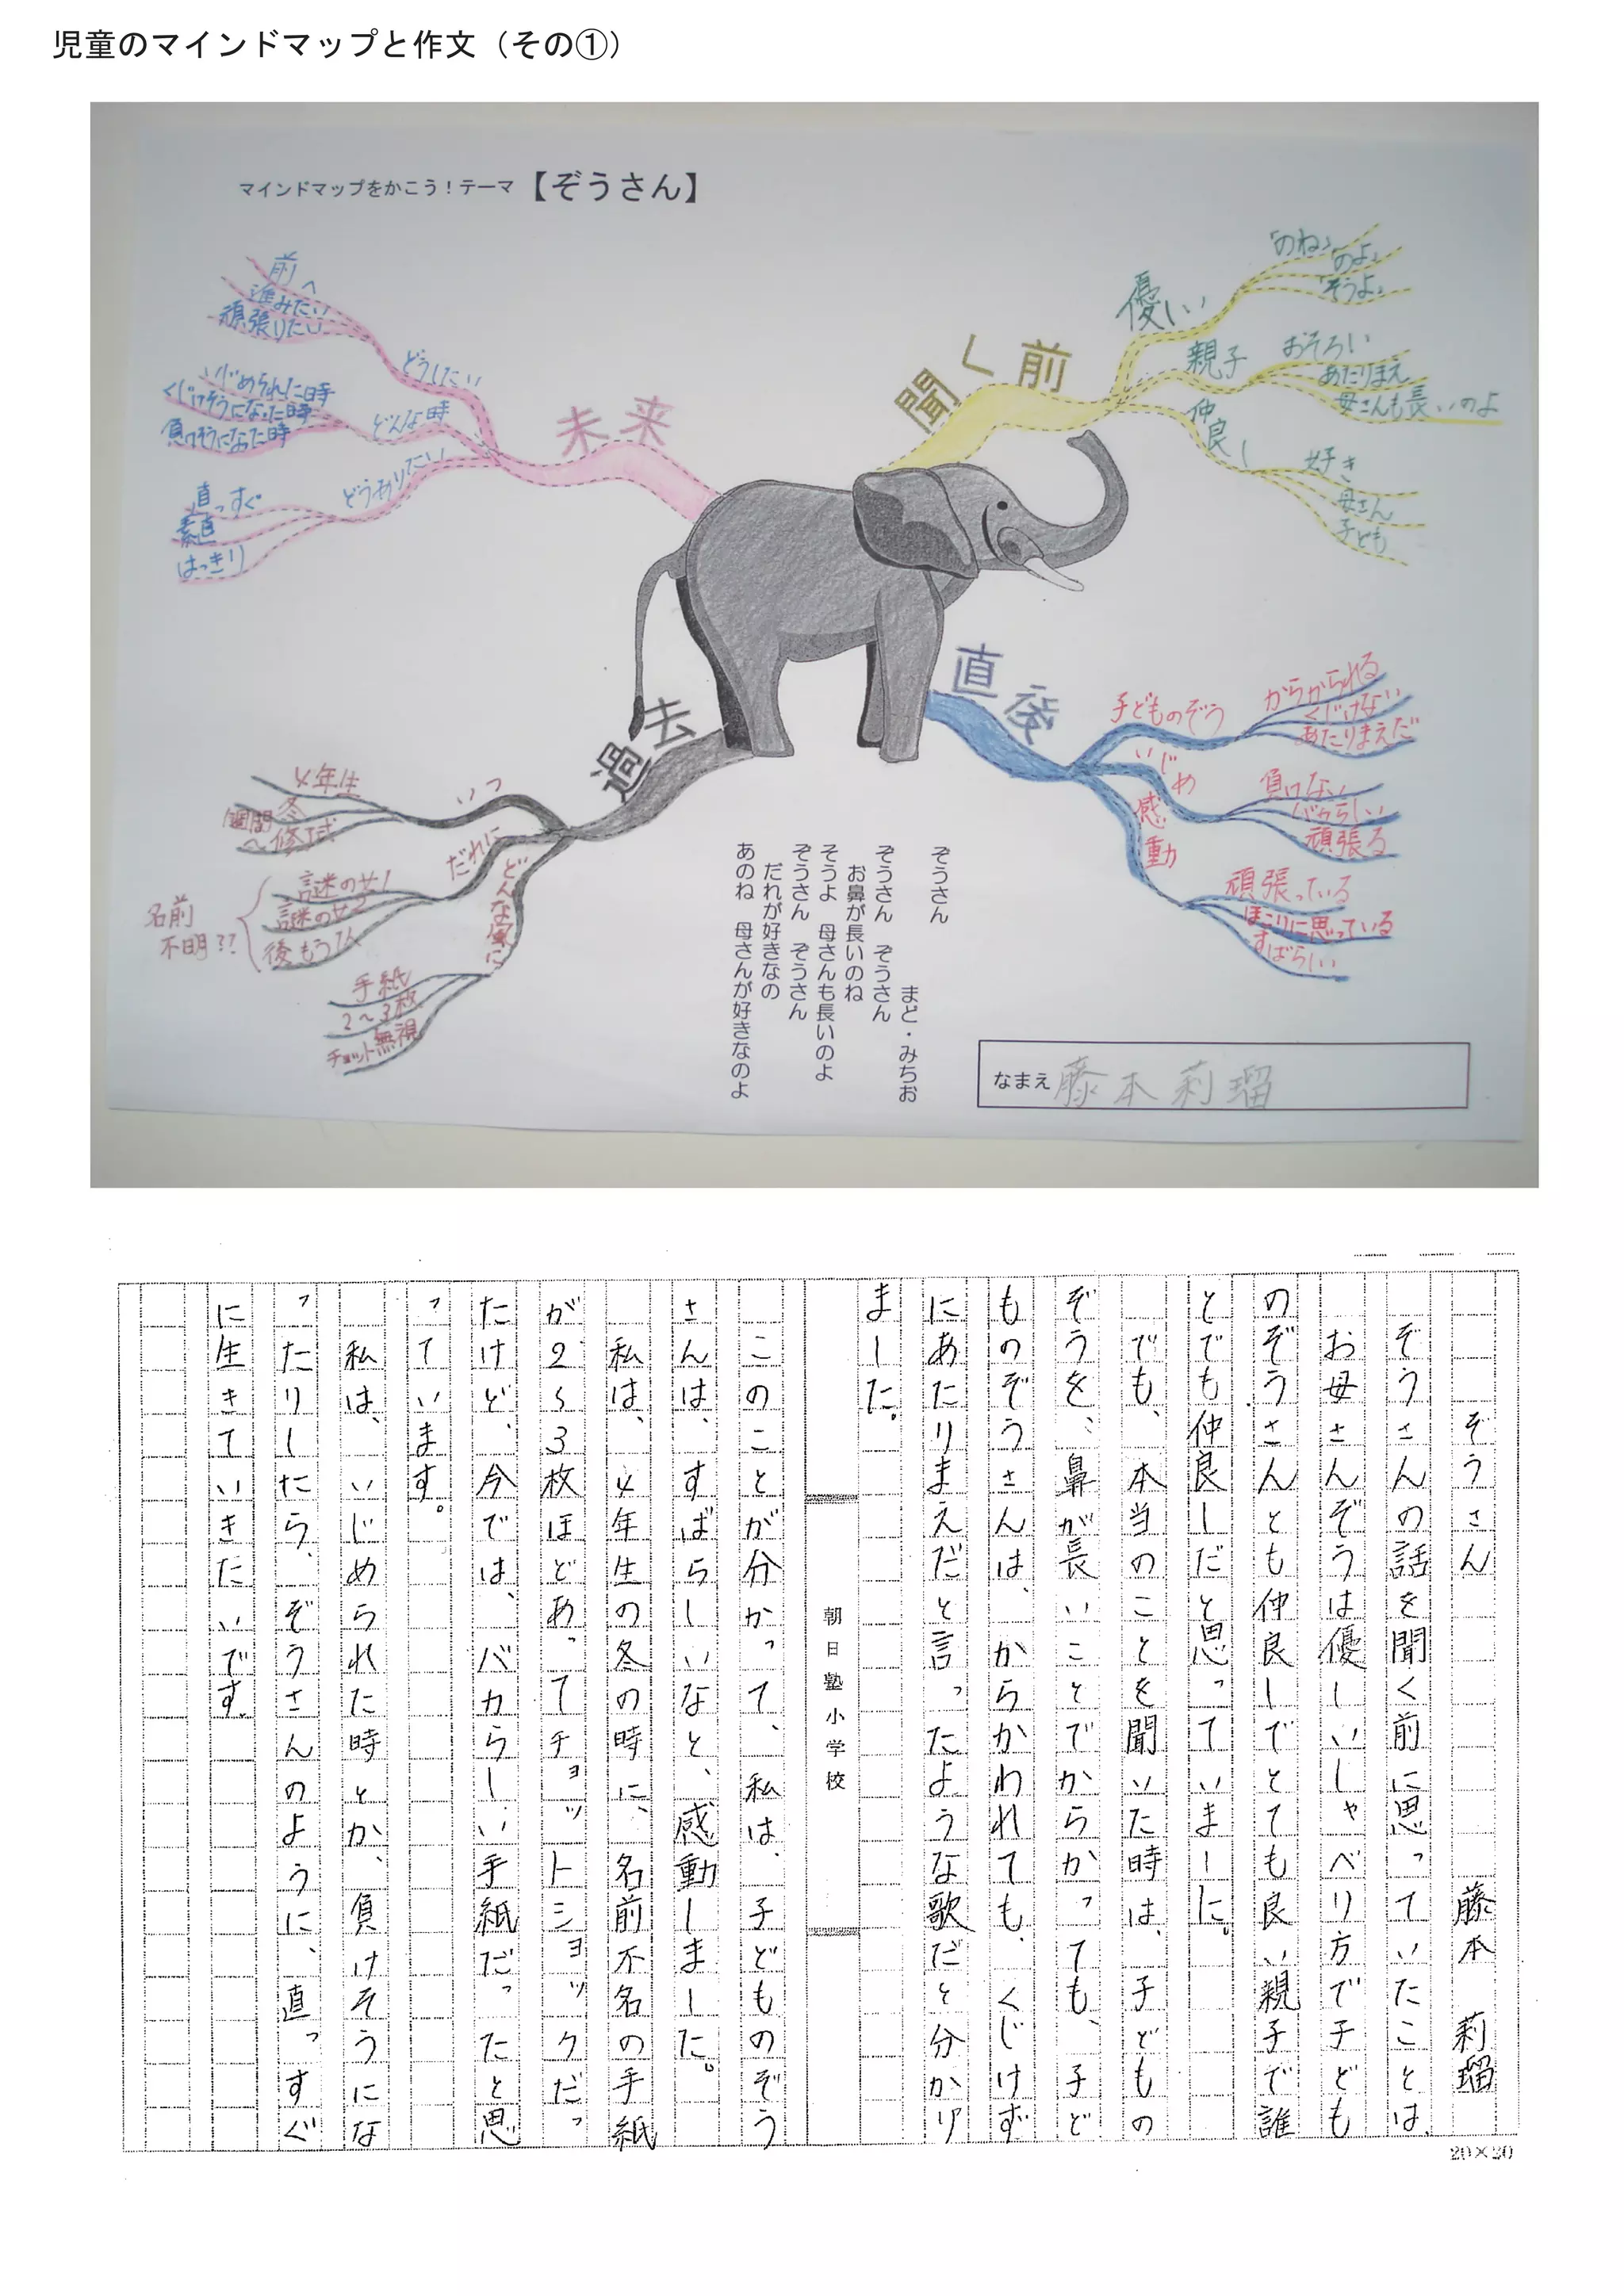 児童のマインドマップと作文（その①）
マインドマップをかこう！テーマ【ぞうさん】
聞く前
優い
「のね」
「のよ」
「そうよ」
親子
おそろい
あたりまえ
母さんも長いのよ
仲良し
好き
母さん
子ども
直後
子どものぞう
からかられる
くじけない
あたりまえだ
いじめ
負けない
バカらしい
頑張る
感動
頑張っている
ほこりに思っている
すばらしい
過去
いつ
4年生
冬
1週間～修了式
だれに
謎の女1
謎の女2
後もう1人
名前
不明??
どんな風に
手紙
2～3枚
チョット無視
未来
どうしたい
前へ
進みたい
頑張りたい
どんな時
いじめられた時
くじけそうになった時
負けそうになった時
どうありたい
直っすぐ
素直
はっきり
ぞうさん
まど・みちお
ぞうさん　ぞうさん
お鼻が長いのね
そうよ　母さんも長いのよ
ぞうさん　ぞうさん
だれが好きなの
あのね　母さんが好きなのよ
なまえ 藤本莉瑠
ぞうさん　藤本　莉瑠
ぞうさんの話を聞く前に思っていたことは、
お母さんぞうは優しいしゃべり方で子ども
のぞうさんとも仲良しでとても良い親子で誰
とでも仲良しだと思っていました。
でも、本当のことを聞いた時は、子どもの
ぞうを、鼻が長いことでからかっても、子ど
ものぞうさんは、からかわれても、くじけず
にあたりまえだと言ったような歌だと分かり
ました。
朝日塾小学校
このことが分かって、私は、子どものぞう
さんは、すばらしいなと、感動しました。
私は、4年生の冬の時に、名前不名の手紙
が2～3枚ほどあってチョットショックだっ
たけど、今では、バカらしい手紙だったと思
っています。
私は、いじめられた時とか、負けそうにな
ったりしたら、ぞうさんのように、直っすぐ
に生きていきたいです。
20×20